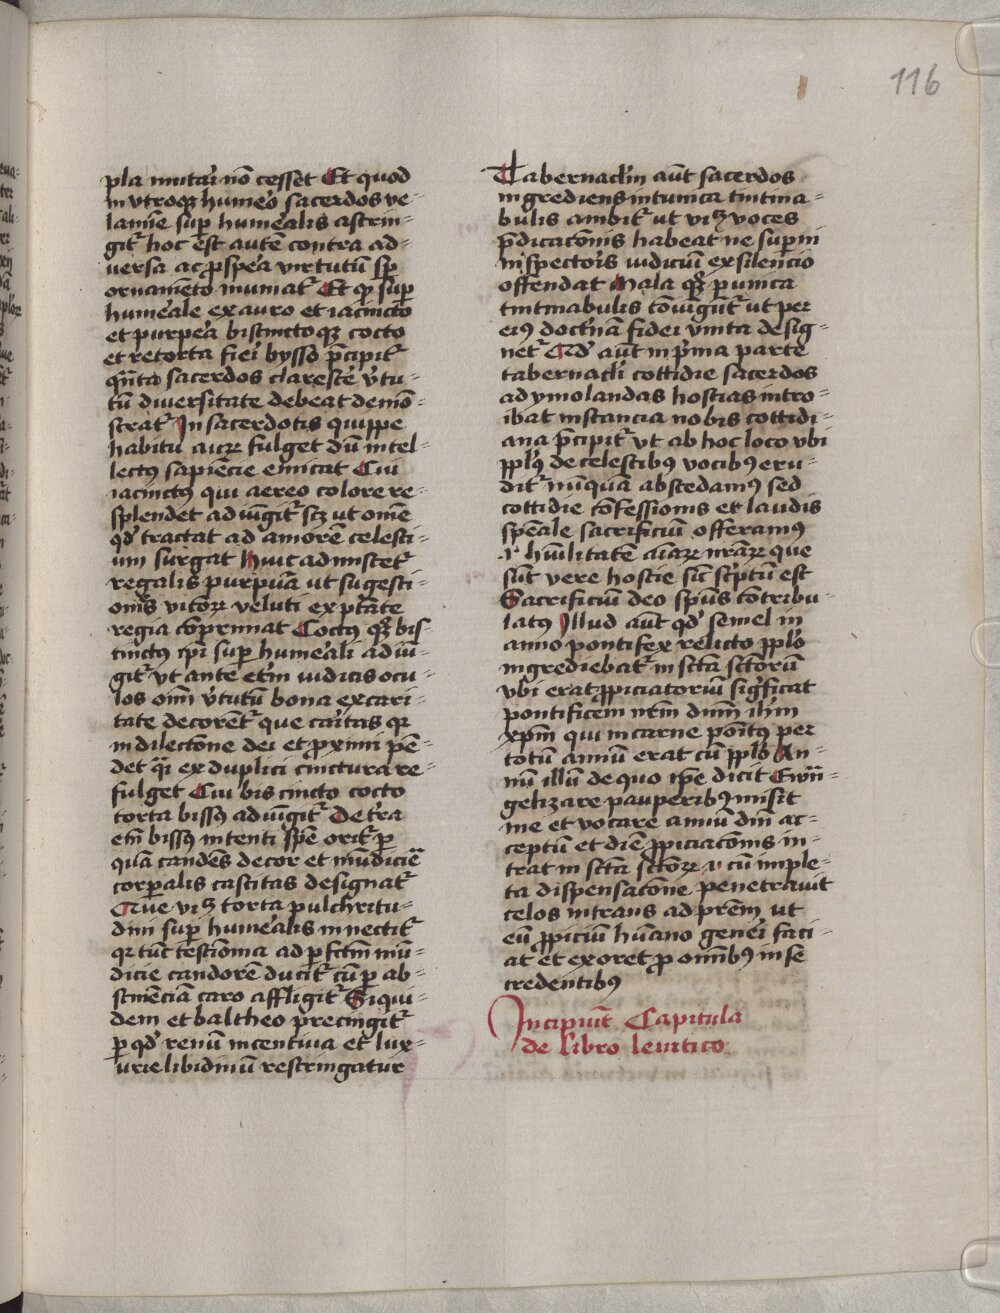 116
pla imitari nō cesset Et quod
in vtroqꝫ humero sacerdos ve
lamine suꝑ humeralis astrin-
git᷑ hoc est autē contra ad-
uersa ac ꝓspera virtutū sꝑ
ornamēto muniat᷑ Et qꝫ suꝑ
humerale ex auro et iacincto
et purpera bistinctoqꝫ cocto
et retorta fieri bysso p̄cipit᷑
qn̄ta sacerdos clarescē v̓tu-
tū diuersitate debeat demō-
strat᷑ In sacerdotis quippe
habitu auꝝ fulget dū intel-
lectꝰ sapiēcie emicat Cui
iacinctꝰ qui aereo colore re-
splendet adiūgit᷑ scꝫ ut om̄e
qd̓ tractat ad amorē celesti-
um surgat Huic admiscet᷑
regalis purpura ut sugesti-
on̄s vitoꝝ veluti ex ptāte
regia cōprimat Coctꝰ qꝫ bis
tinctꝰ ip̄i suꝑ humerali adiū-
git᷑ vt ante et̄ni iudicis ocu-
los om̄ v̓tutū bona ex cari-
tate decorent᷑ que caritas qꝛ
in dilectōne dei et ꝓximi pē-
det q̄i ex duplici tinctura re-
fulget Cui bis tincto cocto
torta bissꝰ adiūgit᷑ De t̓ra
em̄ bissꝰ nitenti spē orit᷑ ꝑ
quā candēs decor et mūdiciē
corꝑalis castitas designat᷑
Que viꝫ torta pulchritu-
dini suꝑ humeralis innectit᷑
qꝛ tūc testīonia ad ꝑfctm̄ mū-
dicie candorē ducit᷑ cū ꝑ ab-
stinēciā caro affligit᷑ Siqui-
dem et baltheo precingit᷑
ꝑ qd̓ renū incentiua et lux-
urie libidinū restringatur
Tabernaclm̄ aūt sacerdos
ingrediens in tunica tintina-
bulis ambit᷑ ut viꝫ voces
p̄dicacōnis habeat ne suꝑni
inspectoris iudiciū ex silencio
offendat Mala qꝫ punica
tintinabulis cōiūgūt᷑ ut per
eiꝰ doctⁱnā fidei vnita desig-
net᷑ Qd̓ aūt in p̓ma parte
tabernacli cottidie sacerdos
ad ymolandas hostias intro-
ibat instancia nobis cottidi-
ana p̄cipit᷑ vt ab hoc loco vbi
ppl̓s de celestibꝰ vocibꝰ eru-
dit᷑ nūquā abscedamꝰ sed
cottidie cōfessionis et laudis
spēale sacrificiū offeramꝰ
⁊ hūilitatē aīaꝝ nr̄aꝝ que
sūt vere hostie sic̄ sc̓ptū est
Sacrificiū deo spūs cōtribu-
latꝰ Illud aūt qd̓ semel in
anno pontifex relicto ppl̓o
ingrediebat᷑ in sctā sctōrū
vbi erat ꝓpiciatoriū sig̓ficat
pontificem nr̄m dnm̄ ih̄m
xp̄m qui in carne positꝰ per
totū annū erat cū ppl̓o An-
nū illū de quo ip̄e dicit Ewn̄-
gelizare pauperibꝰ misit
me et vocare annū dn̄i ac-
ceptū et diē ꝓpiciacōnis in-
trat in sctā sctōꝝ ⁊ cū imple-
ta dispensacōne penetrauit
celos intrans ad pr̄em ut
eū ꝓpiciū hūano gen̓i faci-
at et exoret ꝓ om̄ibꝰ in se
credentibꝰ
Incipiūt Capitula
de libro leuitico